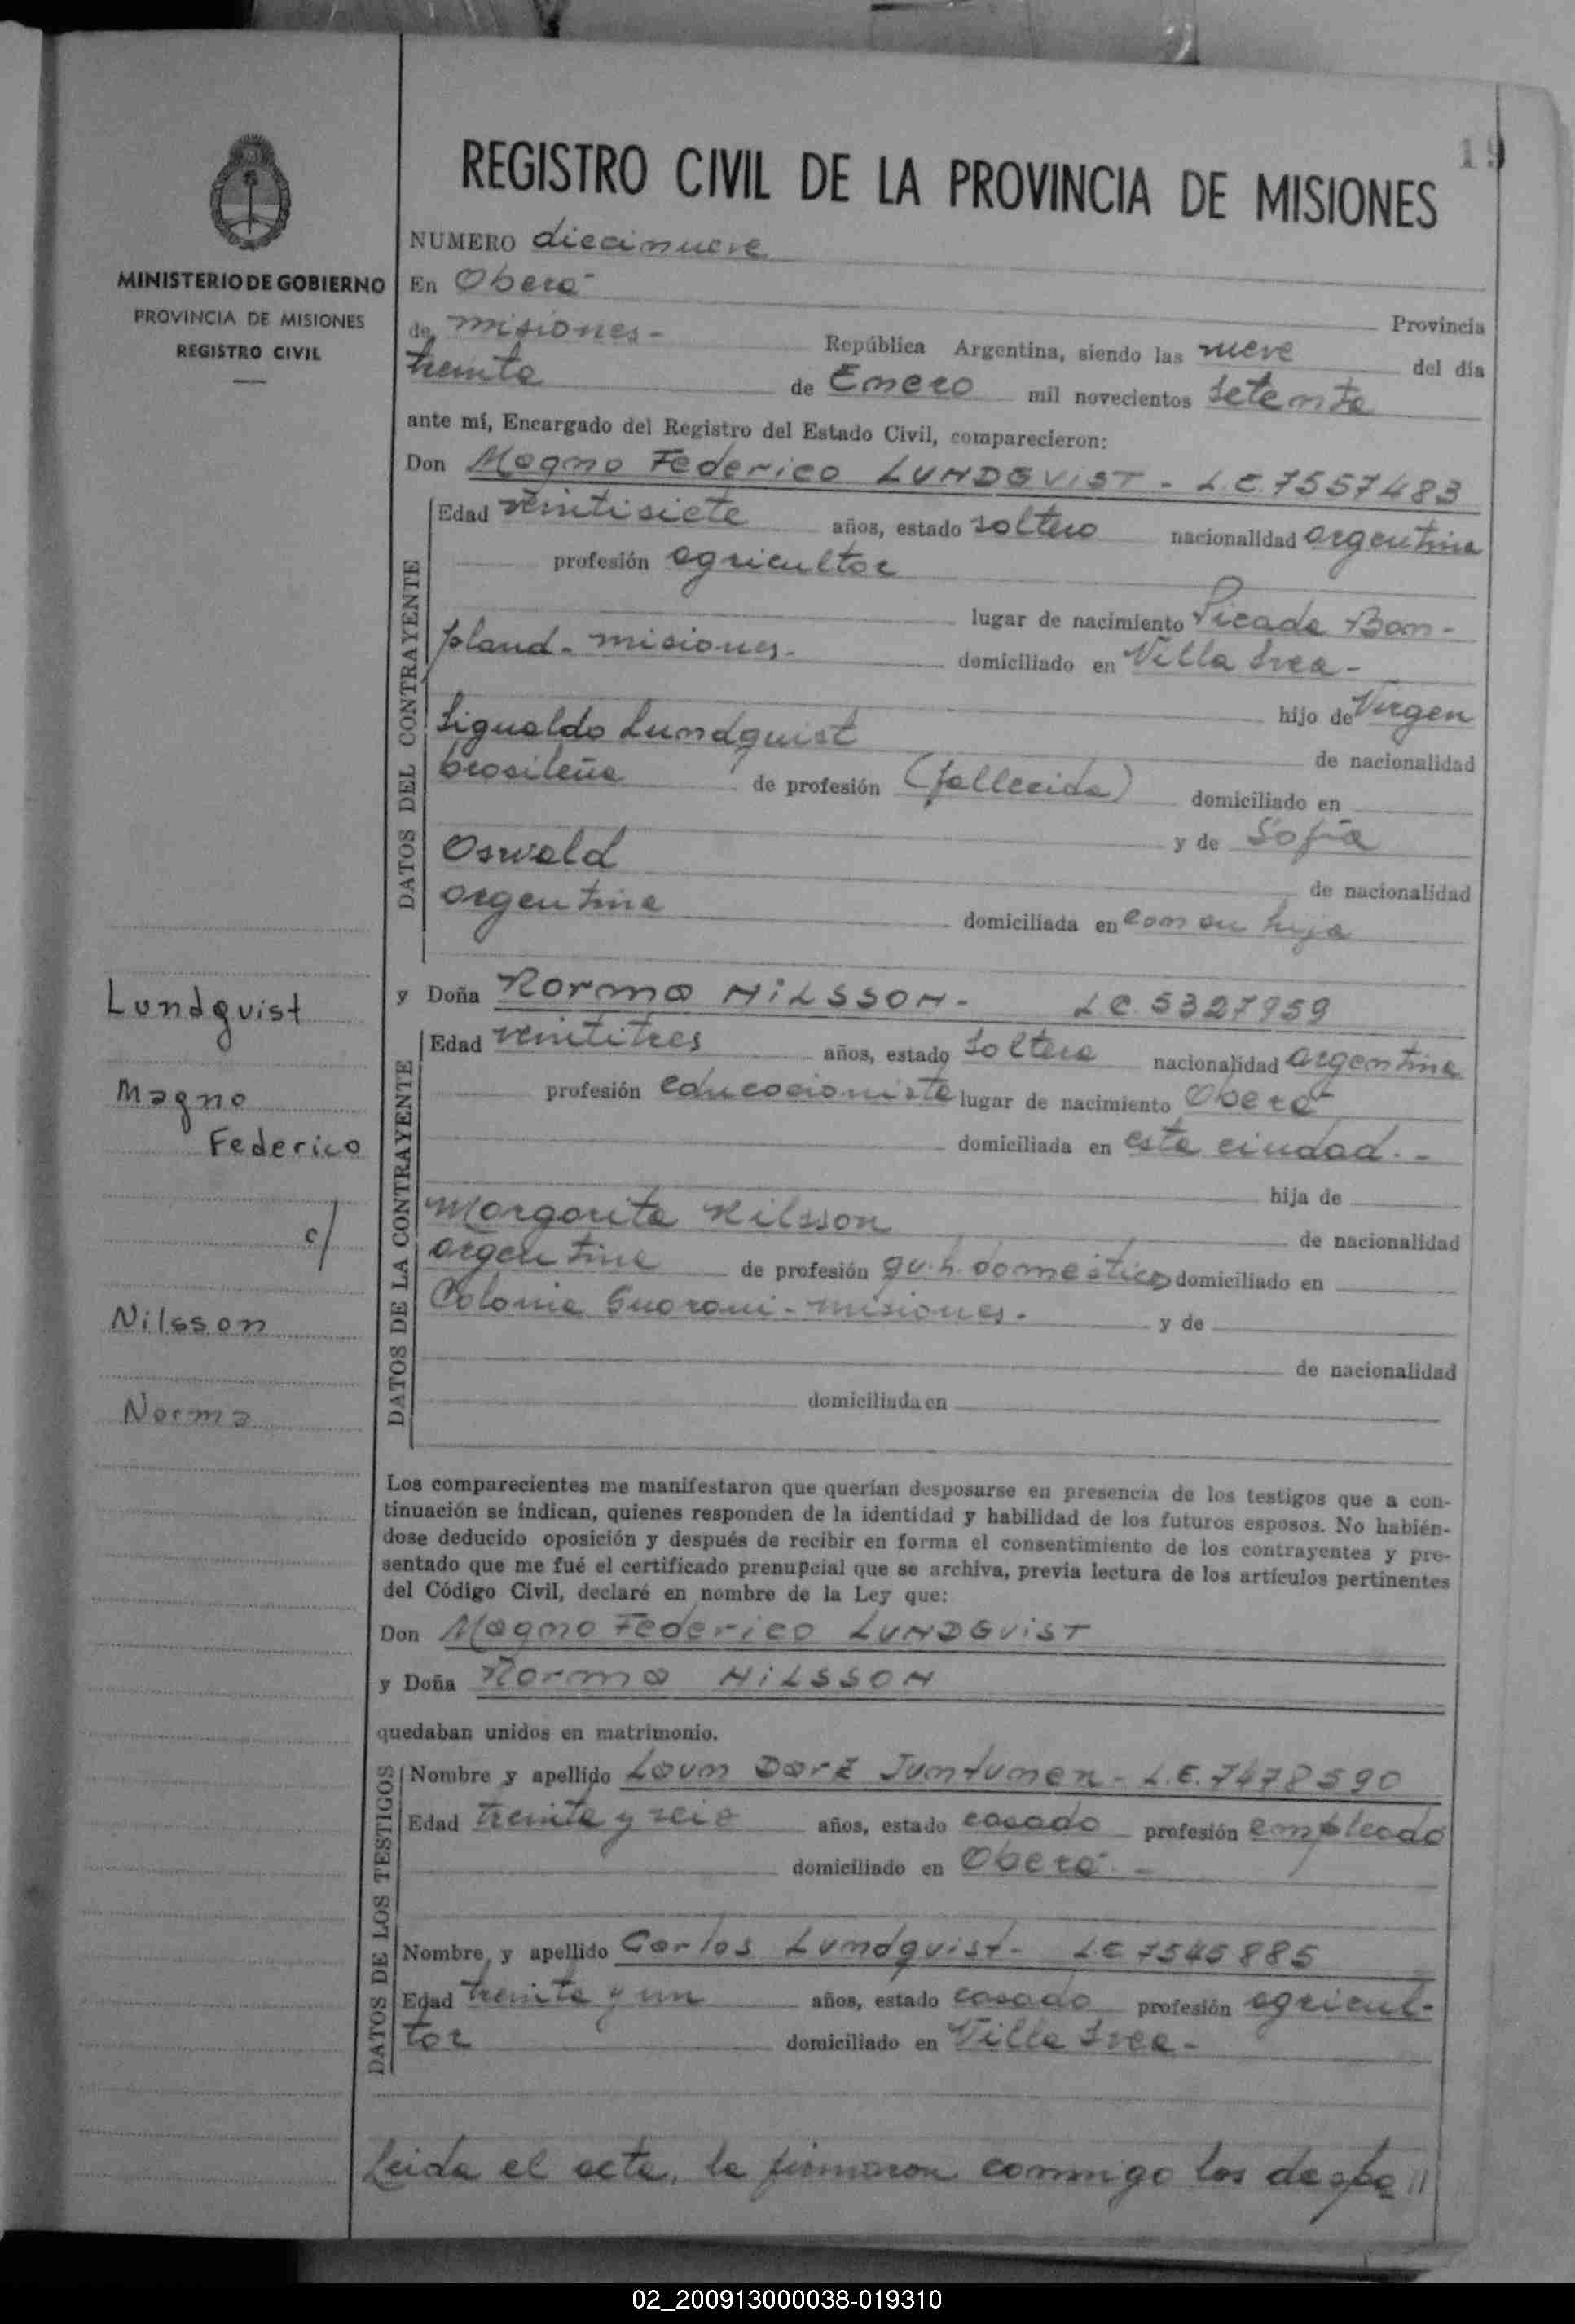 19
REGISTRO CIVIL DE LA PROVINCIA DE MISIONES
MINISTERIO DE GOBIERNO
PROVINCIA DE MISIONES
REGISTRO CIVIL
NUMERO diecinueve
En Oberá
Provincia
de misiones - República Argentina, siendo las nueve del día
treinta de Enero mil novecientos setenta
ante mí, Encargado del Registro del Estado Civil, comparecieron:
Don Magno Federico LUNDQVIST - L.E. 7557483
DATOS DEL CONTRAYENTE
Edad veintisiete años, estado soltero nacionalidad argentina
profesión agricultor
lugar de nacimiento Picada Bom-
pland - misiones - domiciliado en Villa Svea -
hijo de Virgen
Sigualdo Lundquist de nacionalidad
brasileña de profesión (fallecida) domiciliado en
y de Sofia
Oswald de nacionalidad
argentina domiciliada en con su hija
y Doña Norma NILSSON - LC 5327959
DATOS DE LA CONTRAYENTE
Edad veintitres años, estado soltera nacionalidad argentina
profesión educacionista lugar de nacimiento Oberá
domiciliada en esta ciudad. -
hija de
Margarita Nilsson de nacionalidad
argentina de profesión qu.h. domesticos domiciliado en
Colonia Guarani - misiones - y de
de nacionalidad
domiciliada en
Lundqvist
Magno
Federico
c/
Nilsson
Norma
Los comparecientes me manifestaron que querían desposarse en presencia de los testigos que a con-
tinuación se indican, quienes responden de la identidad y habilidad de los futuros esposos. No habién-
dose deducido oposición y después de recibir en forma el consentimiento de los contrayentes y pre-
sentado que me fué el certificado prenupcial que se archiva, previa lectura de los artículos pertinentes
del Código Civil, declaré en nombre de la Ley que:
Don Magno Federico LUNDQVIST
y Doña Norma NILSSON
quedaban unidos en matrimonio.
DATOS DE LOS TESTIGOS
Nombre y apellido Juntunen - L.E. 7478590
Edad treinta y seis años, estado casado profesión empleado
domiciliado en Oberá -
Nombre y apellido Carlos Lundqvist - LE 7545885
Edad treinta y un años, estado casado profesión agricul-
tor domiciliado en Villa Svea -
Leida el acta, la firmaron conmigo los de //
02_200913000038-019310